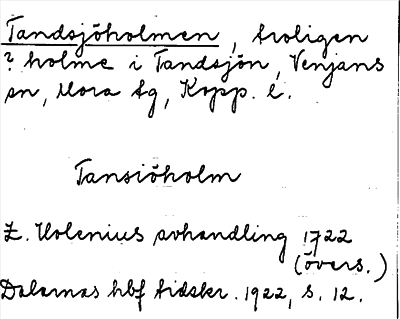 Tandsjöholmen, troligen
? holme i Tandsjön, Venjans
sn, Mora tg, Kopp. l.
Tansiöholm
E. Holenius avhandling 1722
(övers.)
Dalarnas hbf tidskr. 1922, s. 12.